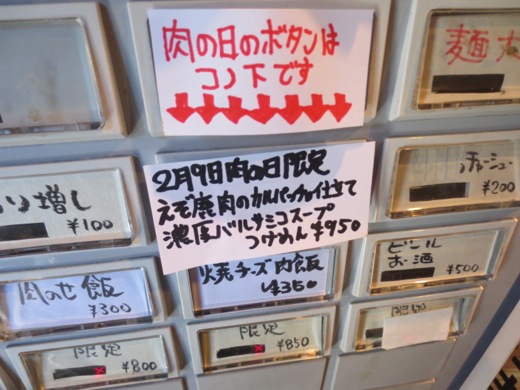 肉の日のボタンは
コノ下です
麺大
2月9日肉の日限定
えぞ鹿肉のカルパッチョ仕立て
濃厚バルサミコスープ
つけめん ¥950
り増し
¥100
チャーシュー
¥200
肉のせ飯
¥300
焼チーズ肉飯
¥350
ビール
お酒
¥500
限定
¥800
限定
¥850
限定